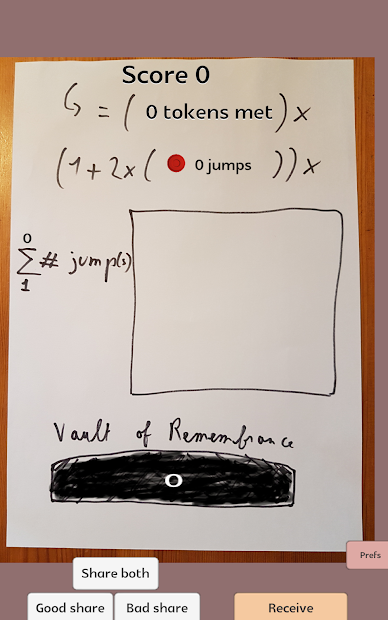 Score 0
G = ( 0 tokens met ) x
(1 + 2 x ( 0 jumps )) x
0
Σ # jump(s)
1
Vault of Remembrance
0
Prefs
Share both
Good share Bad share Receive